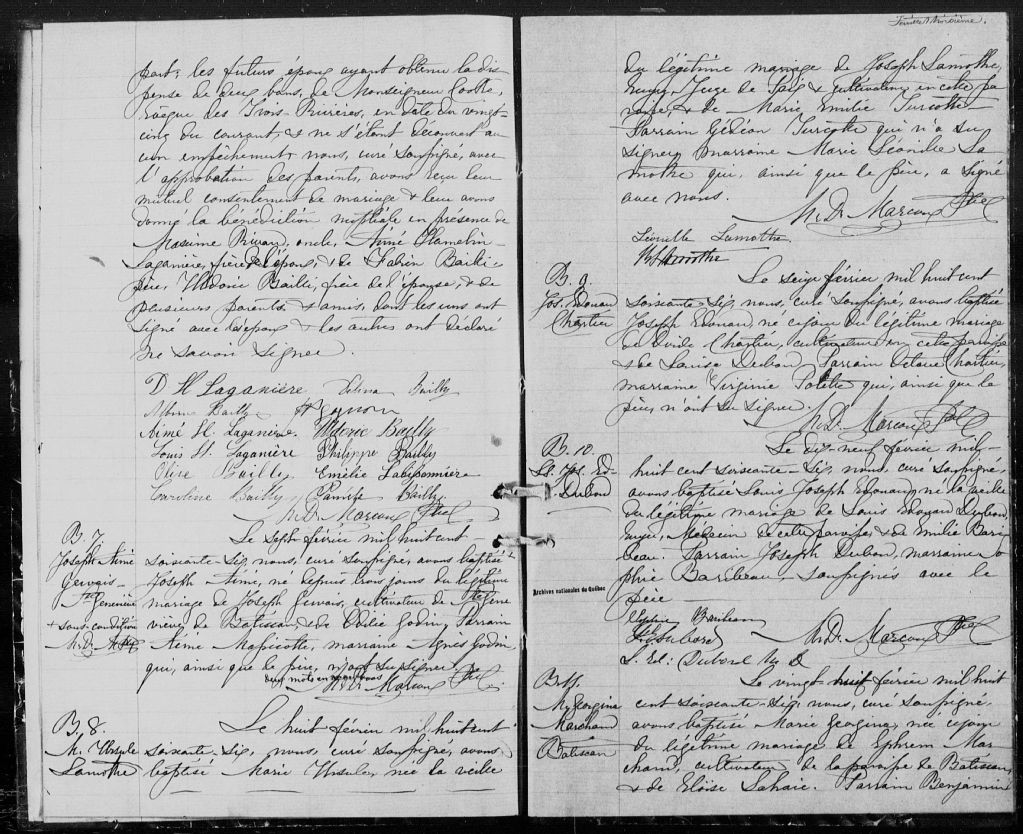 part; les futurs époux ayant obtenu la dis
pense de deux bans, de Monseigneur Cooke,
Évêque des Trois-Rivières, en date du vingt-
cinq du courant, & ne s'étant découvert au
cun empêchement, nous, curé soussigné, avec
l'approbation des parents, avons reçu leur
mutuel consentement de mariage & leur avons
donné la bénédiction nuptiale en présence de
Maxime Rivard, oncle, Aimé Hamelin-
Laganière, frère de l'époux, & de Fabien Bailli
père, Uldoric Bailli, frère de l'épouse, & de
plusieurs parents & amis, dont les uns ont
signé avec les époux & les autres ont déclaré
ne savoir signer.
D H Laganière
Bailly
Bailly
Aimé H. Laganière. Ulderic Bailly
Louis H. Laganière Philippe Bailly
Olive Bailly Emélie
Caroline Bailly Bailly.
M. D. Marcoux Ptre
B. 7
Joseph Aimé
Gervais
Ste Geneviève
+ sous condition
M. D. M. Ptre
Le sept février mil huit cent
soixante-six, nous, curé soussigné, avons baptisé +
Joseph Aimé, né depuis trois jours du légitime
mariage de Joseph Gervais, cultivateur de Ste Gene
viève de Batiscan & de Odilie Godin. Parrain
Aimé Massicotte, marraine Agnès Godin,
qui, ainsi que le père, n'ont su signer.
M. D. Marcoux Ptre
B. 8.
M. Ursule
Lamothe
Le huit février mil huit cent
soixante-six, nous, curé soussigné, avons
baptisé Marie Ursule, née la veille
Feuillet troisième.
du légitime mariage de Joseph Lamothe,
Écuyer, Juge de Paix & cultivateur en cette pa
roisse, & de Marie Emilie Turcotte
Parrain Gédéon Turcotte qui n'a su
signer, marraine Marie Léonille La
mothe qui, ainsi que le père, a signé
avec nous.
M. D. Marcoux Ptre
Léonille Lamothe.
Lamothe
B. 9.
Jos. Edouard
Chartier
Le seize février mil huit cent
soixante-six, nous, curé soussigné, avons baptisé
Joseph Edouard, né ce jour du légitime mariage
de Ovide Chartier, cultivateur en cette paroisse
& de Louise Dubord. Parrain Octave Chartier,
marraine Virginie qui, ainsi que le
père, n'ont su signer.
M. D. Marcoux Ptre
B. 10.
Ls. Jos. Ed-
Dubord
Le dix-neuf février mil-
huit cent soixante-six, nous, curé soussigné,
avons baptisé Louis Joseph Edouard, né la veille
du légitime mariage de Louis Edouard Dubord,
Écuyer, Médecin de cette paroisse, & de Emilie Bari
beau. Parrain Joseph Dubord, marraine So
phie Baribeau - soussignés avec le
père
Baribeau
M. D. Marcoux Ptre
Dubord
L. Ed: Dubord M D
Archives nationales du Québec
B. 11.
M. Georgine
Marchand
Batiscan
Le vingt-huit février mil huit
cent soixante-six, nous, curé soussigné,
avons baptisé Marie Georgina, née ce jour
du légitime mariage de Ephrem Mar
chand, cultivateur de la paroisse de Batiscan,
& de Eloïse Lahaie. Parrain Benjamin